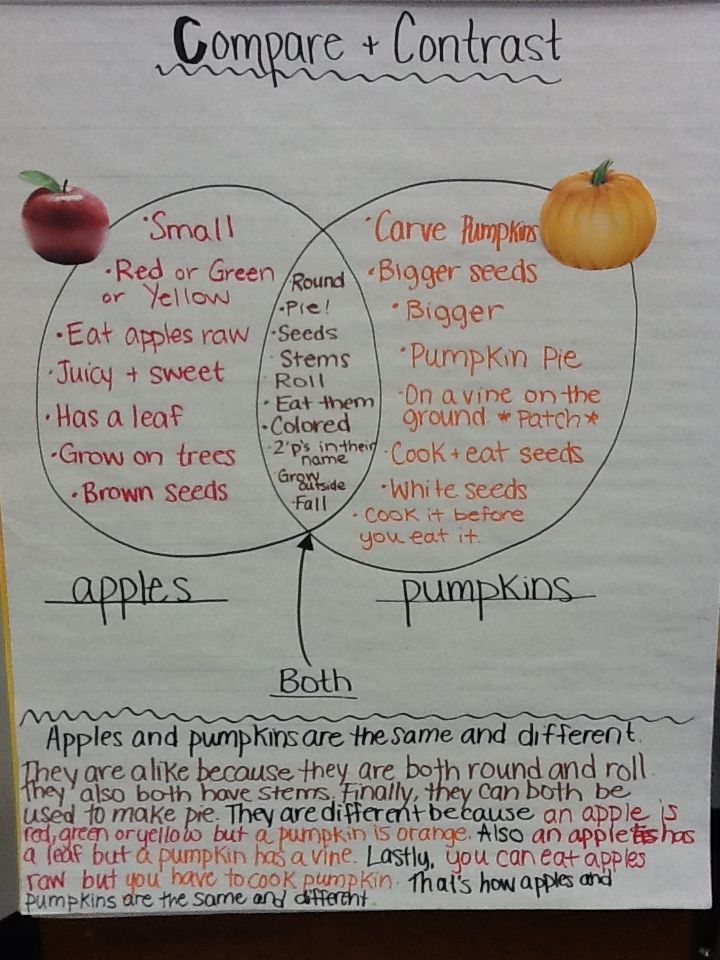 Compare + Contrast
·Small
·Red or Green
or Yellow
·Eat apples raw
·Juicy + sweet
·Has a leaf
·Grow on trees
·Brown seeds
·Round
·Pie!
·Seeds
·Stems
·Roll
·Eat them
·Colored
·2 'p's in their
name
·Grow
outside
·Fall
·Carve Pumpkins
·Bigger seeds
·Bigger
·Pumpkin Pie
·On a vine on the
ground. *Patch*
·Cook + eat seeds
·White seeds
·Cook it before
you eat it.
apples
pumpkins
Both
Apples and pumpkins are the same and different.
They are alike because they are both round and roll.
They also both have stems. Finally, they can both be
used to make pie. They are different because an apple is
red, green or yellow but a pumpkin is orange. Also an apple has
a leaf but a pumpkin has a vine. Lastly, you can eat apples
raw but you have to cook pumpkin. That's how apples and
pumpkins are the same and different.